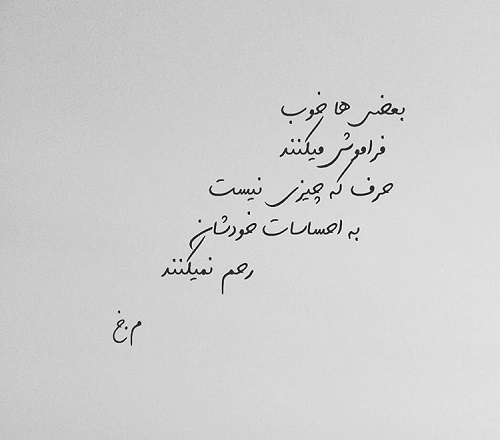 بعضی ها خوب
فراموش میکنند
حرف که چیزی نیست
به احساسات خودشان
رحم نمیکنند
م.خ